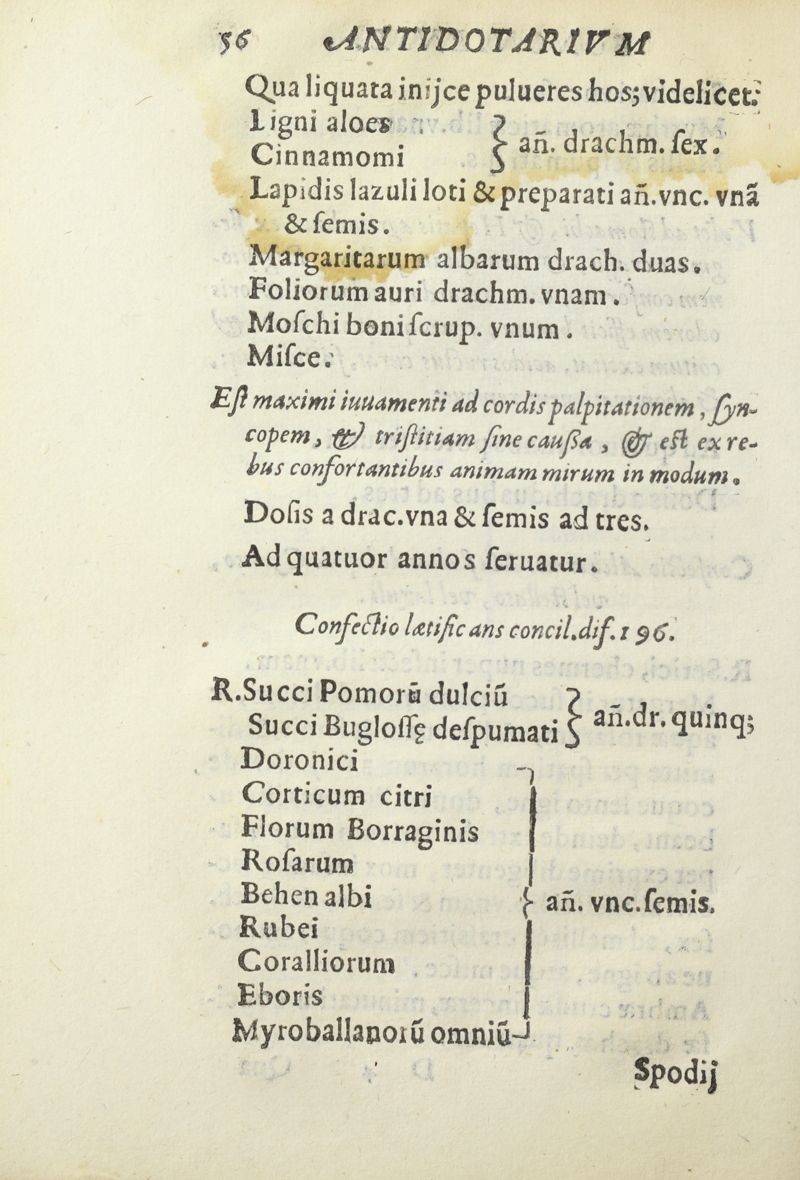 56 ANTIDOTARIVM
Qua liquata inijce pulueres hos; videlicet:
Ligni aloes
Cinnamomi } añ. drachm. ſex.
Lapidis lazuli loti & preparati añ. vnc. vnã
& ſemis.
Margaritarum albarum drach. duas.
Foliorum auri drachm. vnam.
Moſchi boni ſcrup. vnum.
Miſce.
Eſt maximi iuuamenti ad cordis palpitationem, ſyn-
copem, & triſtitiam ſine cauſſa, & eſt ex re-
bus confortantibus animam mirum in modum.
Doſis a drac. vna & ſemis ad tres.
Ad quatuor annos ſeruatur.
Confectio lætificans concil. diſ. 196.
R. Succi Pomorũ dulciũ
Succi Bugloſſę deſpumati } añ. dr. quinq;
Doronici
Corticum citri
Florum Borraginis
Roſarum
Behen albi } añ. vnc. ſemis.
Rubei
Coralliorum
Eboris
Myroballanorũ omniũ
Spodij